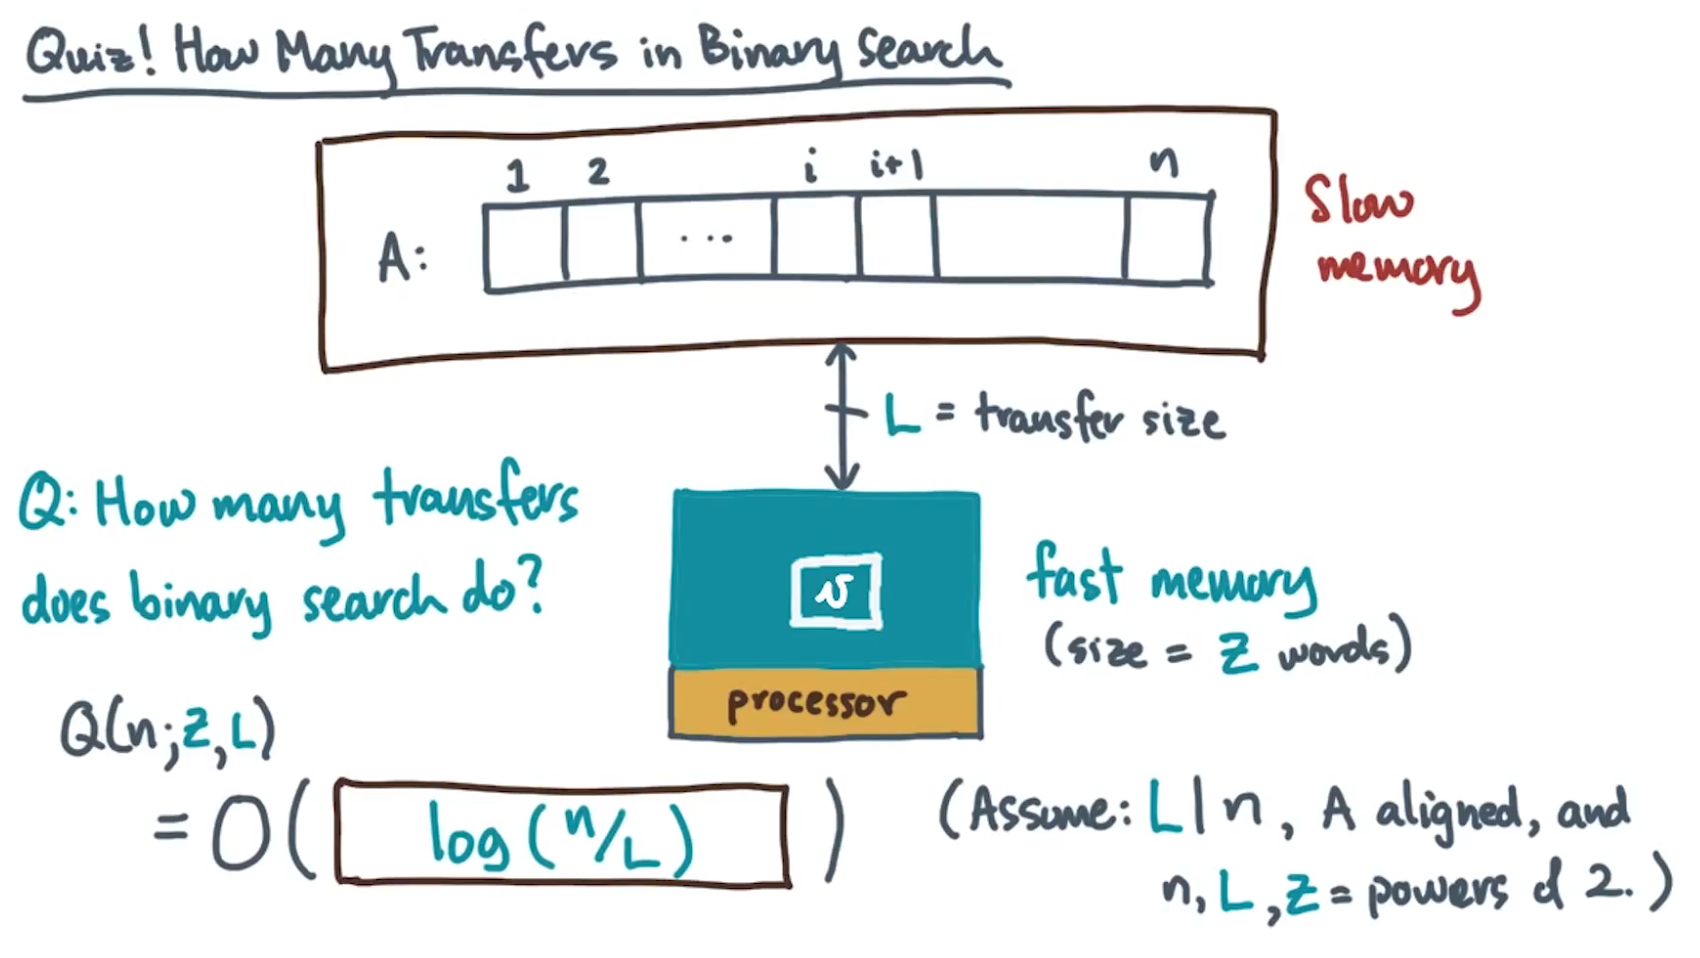 Quiz! How Many Transfers in Binary Search
1 2 i i+1 n
A: ...
Slow
memory
L = transfer size
Q: How many transfers
does binary search do?
v
fast memory
(size = Z words)
processor
Q(n;Z,L)
= O( log(n/L) )
(Assume: L|n, A aligned, and
n, L, Z = powers of 2.)